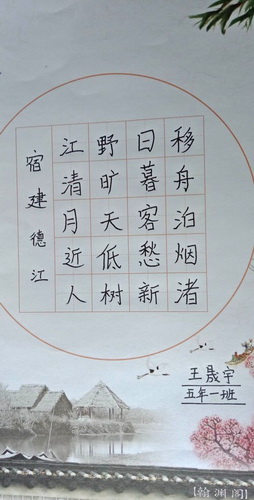 移舟泊烟渚
日暮客愁新
野旷天低树
江清月近人
宿建德江
王晟宇
五年一班
【翰渊阁】